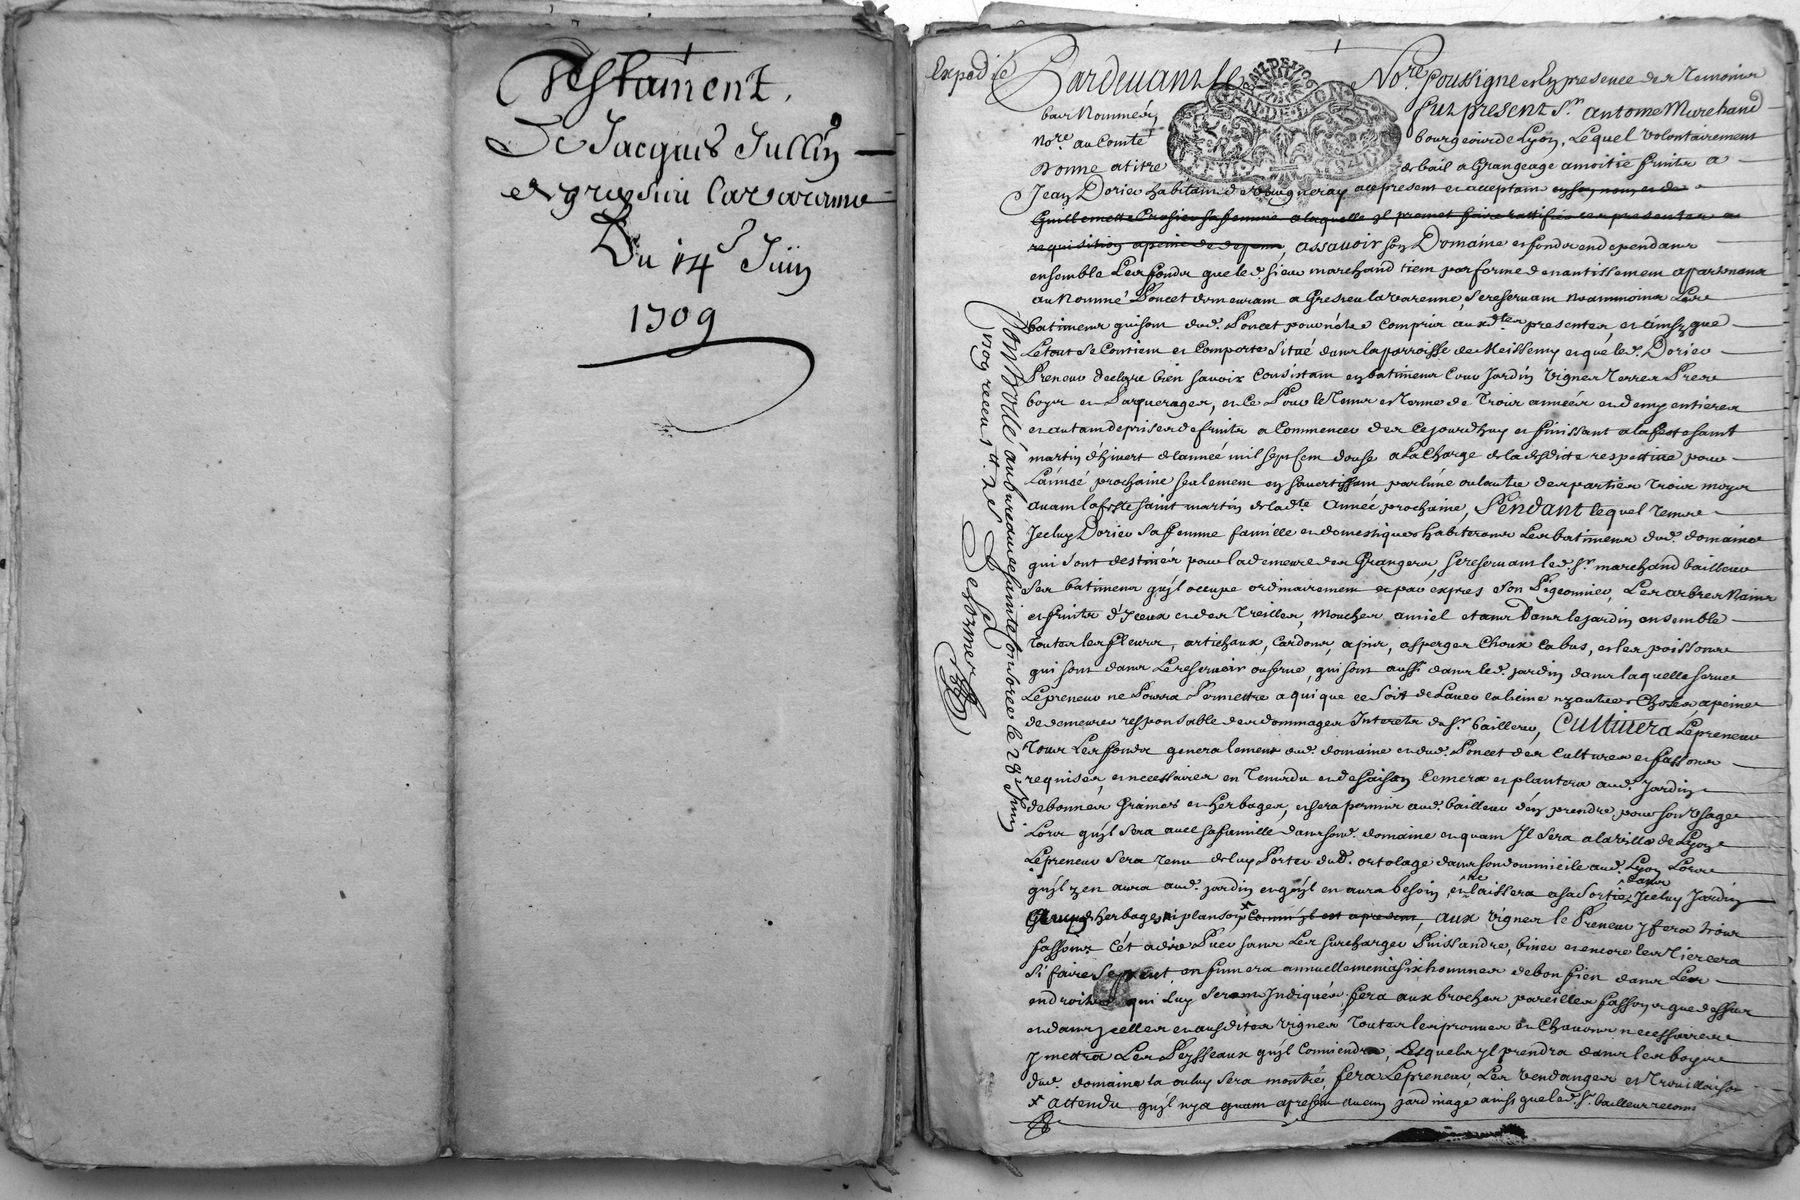 Testament
De Jacques Jullin
et gresieu Lavarenne
Du 14e Juin
1709
Expedié
Pardevant le No.re soussigne et En presence des Temoins
bas Nommés fut present Sr. antoine Marchand
No.re au Comté bourgeois de Lyon, Lequel volontairement
Donne a titre de bail a Grangeage a moitié fruits a
Jean Dorier habitant de Vaugneray cy present et acceptant en son nom et de
Guillemette Crosier sa femme a laquelle il promet faire rattifier ces presentes a
requisition a peine de depens, assavoir son Domaine et fonds en dependans
ensemble Les fonds que led. sieur marchand tient par forme de nantissement appartenans
au Nommé Poncet demeurant a Gresieu lavarenne, se reservant neammoins Les
batimens qui sont dud. Poncet pour n'etre compris aux d.tes presentes, et ainsy que
Le tout se Contient et Comporte situé dans la parroisse de Meissemy et que led. Dorier
Preneur declare bien savoir Consistant en batimens Cour Jardin vignes Terres Prés
boys et Pasquerages, et ce Pour le Tems et Terme de Trois années et demy entieres
et autant de prises de fruits a Commencer des ce jourd'huy et finissant a la feste saint
martin d'hivert de l'année mil sept Cent douse a la Charge de la desdicte respective pour
L'année prochaine seulement en s'avertissant par l'une ou l'autre des parties Trois moys
avant la feste saint martin de lad.te Année prochaine, Pendant lequel Tems
Jceluy Dorier sa femme famille et domestiques habiterons Les batimens dud. domaine
qui sont destinés pour la demeure des Grangers, se reservant led. Sr. marchand bailleur
Les batimens qu'jl occupe ordinairement et par expres son Pigeonnier, Les arbres Nains
et fruits d'Jceux et des Treilles, Mouches a miel etans Dans le jardin ensemble
Toutes les fleurs, artichaux, Cardons, apis, asperges Choux Cabus, et les poissons
qui sont dans Le reservoir ou serve, qui sont aussi dans led. jardin dans laquelle serve
Le preneur ne Pourra Permettre a qui que ce soit de Laver ny autres Choses a peine
de demeurer responsable des dommages Interets du Sr. bailleur, Cultivera Le preneur
Tous Les fonds generalement dud. domaine et dud. Poncet des Cultures et fassons
requises, et necessaires en Tems du et de saison semera et plantera aud. Jardin
de bonnes Graines et herbages, et sera permis aud. bailleur d'en prendre pour son Usage
Lors qu'jl sera avec sa famille dans sond. domaine et quant Jl sera a la ville de Lyon
Le preneur sera Tenu de luy Porter dud. ortolage dans son doumicile aud. Lyon Lors
qu'jl y en aura aud. jardin et qu'jl en aura besoin, et ne laissera a sa sortie dans Jceluy Jardin
herbages ni plansons x Comm'jl est a present, aux vignes le Preneur y fera trois
fassons C'ét a dire Puer sans Les surcharger Puissandre, biner et encore les Tiercera
si faire se peut en fumera annuellement a six hommes de bon fien dans Les
endroits qui Luy seront Indiqués, fera aux broches pareilles fassons que dessus
et dans jcelles et ausdites vignes Toutes les provins et Chavons necessaires
y mettra Les Peysseaux qu'jl Conviendra, Lesquels jl prendra dans les boys
dud. domaine la ou luy sera montré, fera Le preneur, Les vendanges et Trouillaison
x attendu qu'jl n'ya quant apresent aucun jardinage ainsi que led. Sr. bailleur reconn
Controllé au bureau de sainte Consorce le 28e Juin
1709 receu
Desormes